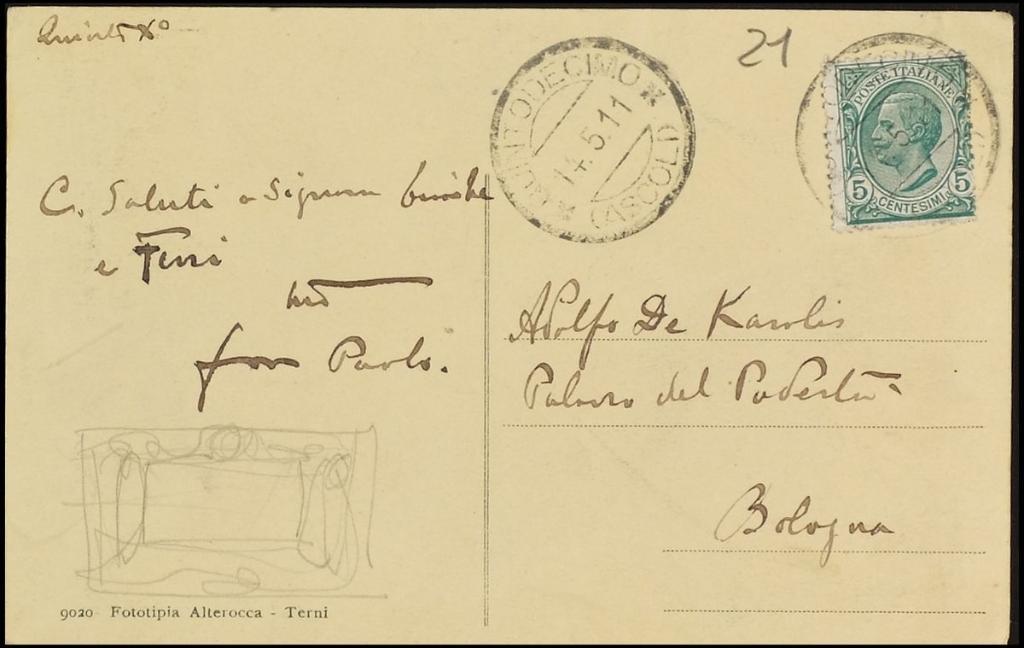 21
QUINTODECIMO
14.5.11
(ASCOLI)
POSTE ITALIANE
5 5
CENTESIMI
C. Saluti a Signora
e
Paolo.
Adolfo De Karolis
Palazzo del Podestà
Bologna
9020 Fototipia Alterocca - Terni